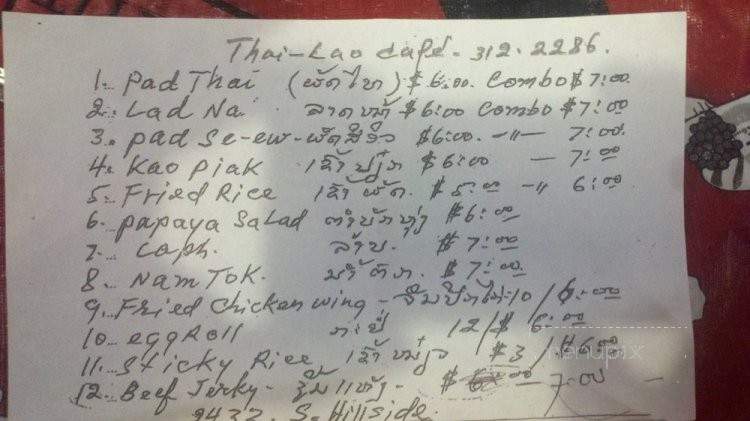 Thai-Lao café. 312.2286.
1. Pad Thai (ຜັດໄທ) $6:00. Combo $7:00
2. Lad Na ລາດໜ້າ $6:00 Combo $7:00
3. pad Se-ew - ຜັດສີອິວ $6:00. -"- 7:00.
4. Kao Piak ເຂົ້າປຽກ $6:00 - 7:00
5. Fried Rice ເຂົ້າຜັດ. $5:00 -" 6:00
6. papaya Salad ຕຳໝາກຫຸ່ງ $6:00
7. Laph. ລາບ. $7:00
8. Nam Tok. ນ້ຳຕົກ. $7:00
9. Fried Chicken wing - ຈືນປີກໄກ່ 10 / 6:00
10. eggRoll 12/$ 6:00
11. Sticky Rice ເຂົ້າໜຽວ $3 / $6:00
12. Beef Jerky - ຊີ້ນແຫ້ງ - 7:00
2432. S. Hillside.
menupix